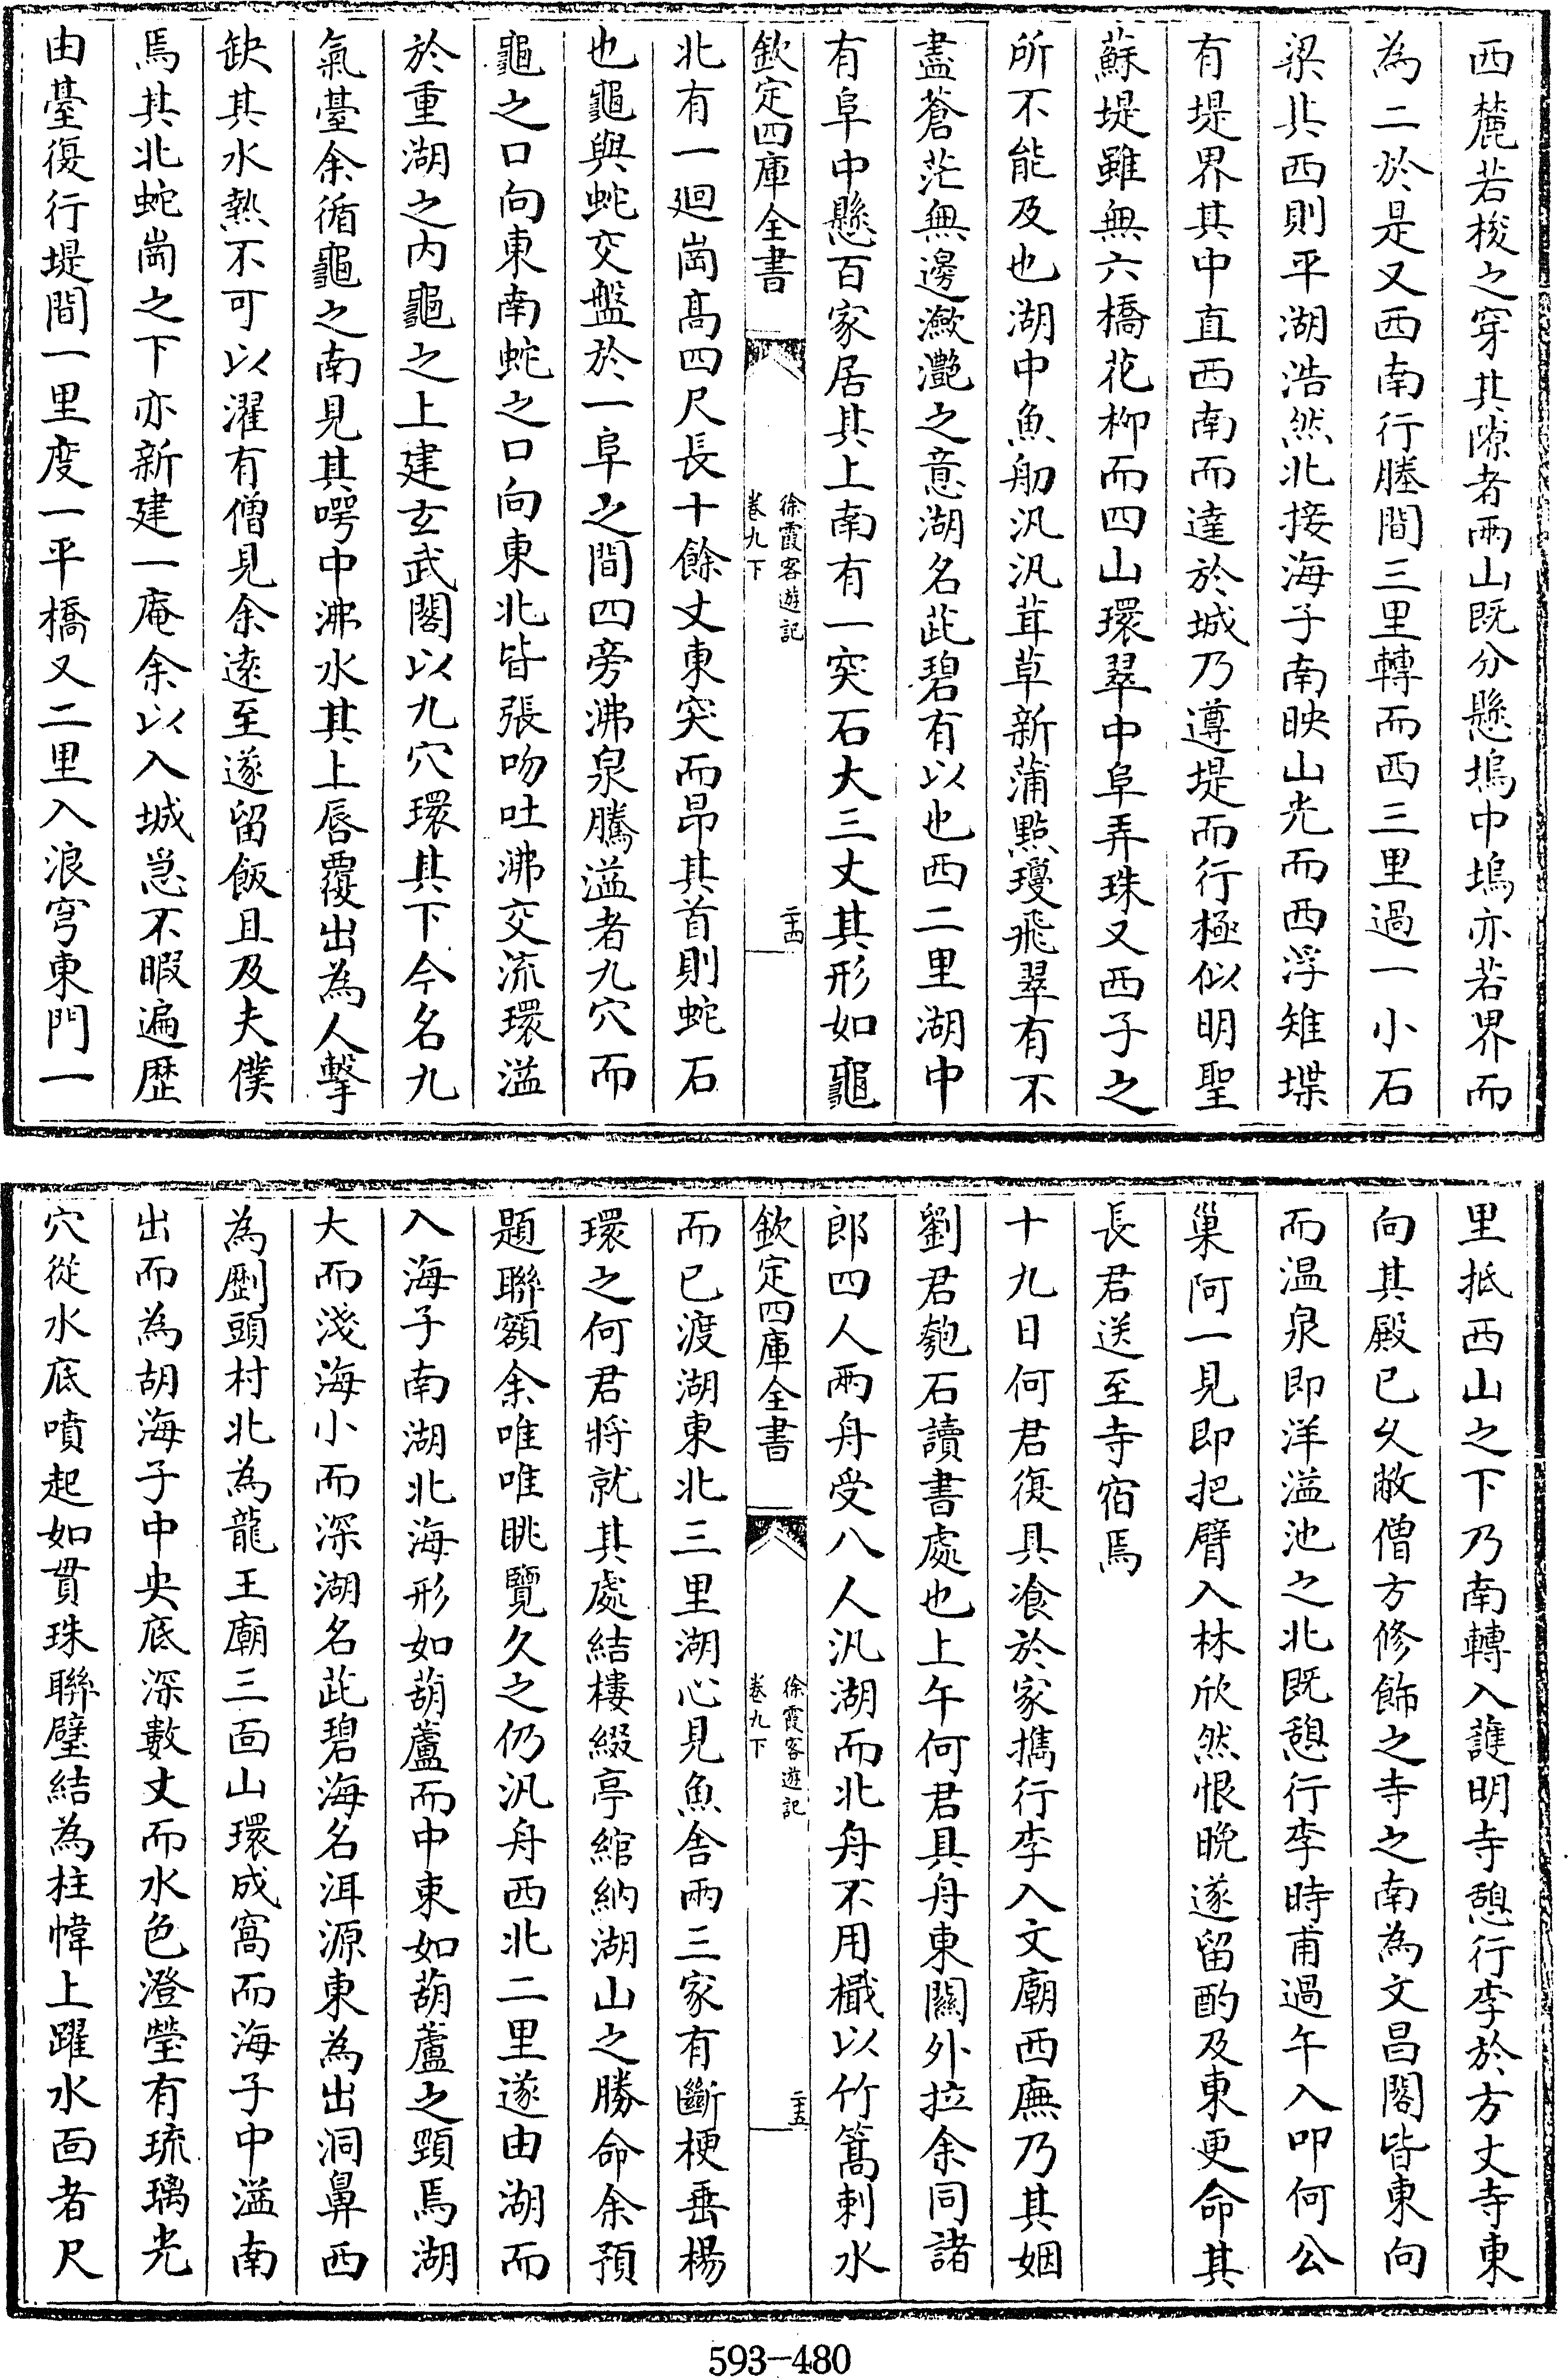 西麓若梭之穿其隙者兩山既分懸塢中塢亦若界而
為二於是又西南行塍間三里轉而西三里過一小石
梁其西則平湖浩然北接海子南映山光而西浮雉堞
有堤界其中直西南而達於城乃遵堤而行極似明聖
蘇堤雖無六橋花柳而四山環翠中阜弄珠又西子之
所不能及也湖中魚舠汎汎茸草新蒲點瓊飛翠有不
盡蒼茫無邊瀲灔之意湖名茈碧有以也西二里湖中
有阜中懸百家居其上南有一突石大三丈其形如龜
欽定四庫全書
徐霞客遊記
卷九下
二十四
北有一廻崗髙四尺長十餘丈東突而昻其首則蛇石
也龜與蛇交盤於一阜之間四旁沸泉騰溢者九穴而
龜之口向東南蛇之口向東北皆張吻吐沸交流環溢
於重湖之内龜之上建玄武閣以九穴環其下今名九
氣臺余循龜之南見其咢中沸水其上唇覆出為人擊
缺其水熱不可以濯有僧見余逺至遂留飯且及夫僕
焉其北蛇崗之下亦新建一庵余以入城急不暇遍歴
由臺復行堤間一里度一平橋又二里入浪穹東門一
里抵西山之下乃南轉入䕶明寺憩行李於方丈寺東
向其殿已乆敝僧方修飾之寺之南為文昌閣皆東向
而温泉即洋溢池之北既憩行李時甫過午入叩何公
巢阿一見即把臂入林欣然恨晩遂留酌及東更命其
長君送至寺宿焉
十九日何君復具飡於家攜行李入文廟西廡乃其姻
劉君匏石讀書處也上午何君具舟東關外拉余同諸
郎四人兩舟受八人汎湖而北舟不用檝以竹篙刺水
欽定四庫全書
徐霞客遊記
卷九下
二十五
而已渡湖東北三里湖心見魚舍兩三家有斷梗垂楊
環之何君將就其處結樓綴亭綰納湖山之勝命余預
題聯額余唯唯眺覽久之仍汎舟西北二里遂由湖而
入海子南湖北海形如葫蘆而中束如葫蘆之頸焉湖
大而淺海小而深湖名茈碧海名洱源東為出洞鼻西
為㔉頭村北為龍王廟三面山環成窩而海子中溢南
出而為胡海子中央底深數丈而水色澄瑩有琉璃光
穴從水底噴起如貫珠聯璧結為柱幃上躍水面者尺
593-480